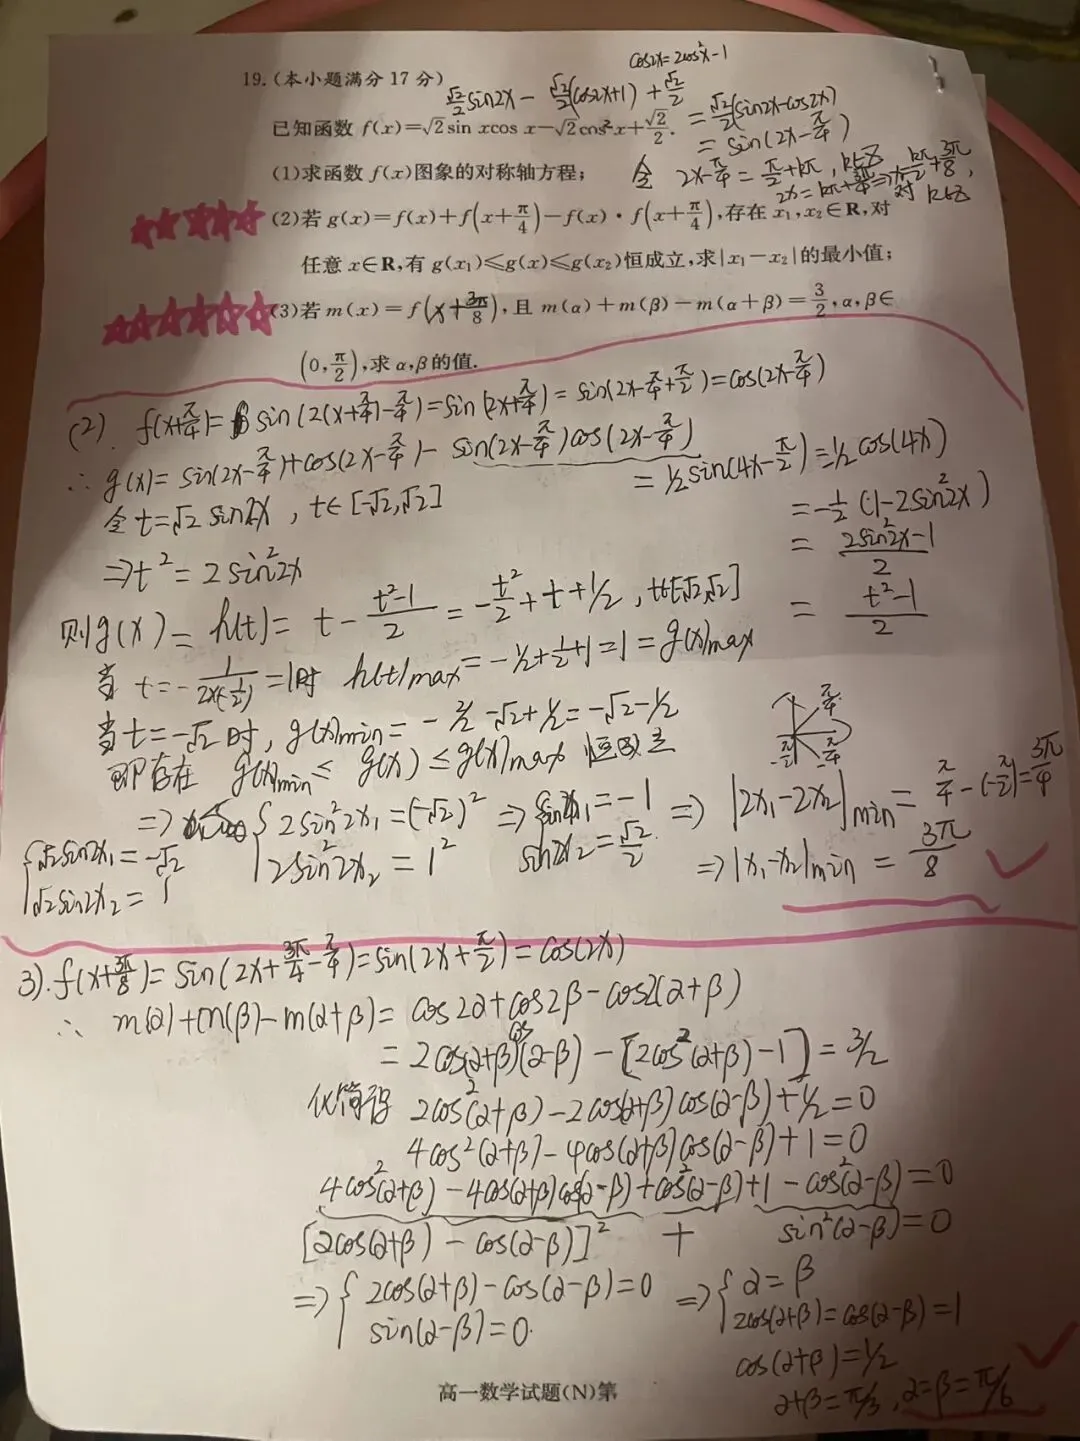 cos2x=2cos²x-1
19.(本小题满分 17 分)
√2/2 sin2x - √2/2(cos2x+1) + √2/2
= √2/2(sin2x-cos2x)
已知函数 f(x)=√2sin xcos x-√2cos²x+√2/2.
= sin(2x-π/4)
(1)求函数 f(x)图象的对称轴方程;
令 2x-π/4=π/2+kπ, k∈Z
2x=kπ+3π/4⇒x=kπ/2+3π/8,
对 k∈Z
(2)若 g(x)=f(x)+f(x+π/4)-f(x)·f(x+π/4),存在 x₁,x₂∈R,对
任意 x∈R,有 g(x₁)≤g(x)≤g(x₂)恒成立,求|x₁-x₂|的最小值;
(3)若 m(x)=f(x+3π/8),且 m(α)+m(β)-m(α+β)=3/2,α,β∈
(0,π/2),求 α,β 的值.
(2). f(x+π/4)= sin(2(x+π/4)-π/4)=sin(2x+π/4)=sin(2x-π/4+π/2)=cos(2x-π/4)
∴ g(x)=sin(2x-π/4)+cos(2x-π/4)-sin(2x-π/4)cos(2x-π/4)
=1/2sin(4x-π/2)=1/2cos(4x)
令 t=√2 sin2x, t∈[-√2,√2]
=-1/2(1-2sin²2x)
⇒t²=2sin²2x
=(2sin²2x-1)/2
则g(x)=h(t)=t-(t²-1)/2=-t²/2+t+1/2, t∈[-√2,√2]
=(t²-1)/2
当 t=-1/(2×(-1/2))=1时 h(t)max=-1/2+1/2+1=1=g(x)max
当t=-√2时, g(x)min=-2/2-√2+1/2=-√2-1/2
π/4
-π/2 -π/4
即存在 g(x)min≤g(x)≤g(x)max 恒成立
⇒{2sin²2x₁=(-√2)² ⇒{sin2x₁=-1 ⇒|2x₁-2x₂|min=π/4-(-π/2)|=3π/4
{√2sin2x₁=-√2
2sin²2x₂=1²
sin2x₂=√2/2.
⇒|x₁-x₂|min=3π/8
√2sin2x₂=1
3). f(x+3π/8)=sin(2x+3π/4-π/4)=sin(2x+π/2)=cos(2x)
∴ m(α)+m(β)-m(α+β)=cos2α+cos2β-cos2(α+β)
=2cos(α+β)cos(α-β)-[2cos²(α+β)-1]=3/2
化简得 2cos²(α+β)-2cos(α+β)cos(α-β)+1/2=0
4cos²(α+β)-4cos(α+β)cos(α-β)+1=0
4cos²(α+β)-4cos(α+β)cos(α-β)+cos²(α-β)+1-cos²(α-β)=0
[2cos(α+β)-cos(α-β)]² + sin²(α-β)=0
⇒{2cos(α+β)-cos(α-β)=0 ⇒{α=β
sin(α-β)=0.
2cos(α+β)=cos(α-β)=1
cos(α+β)=1/2
α+β=π/3, α=β=π/6
高一数学试题(N)第